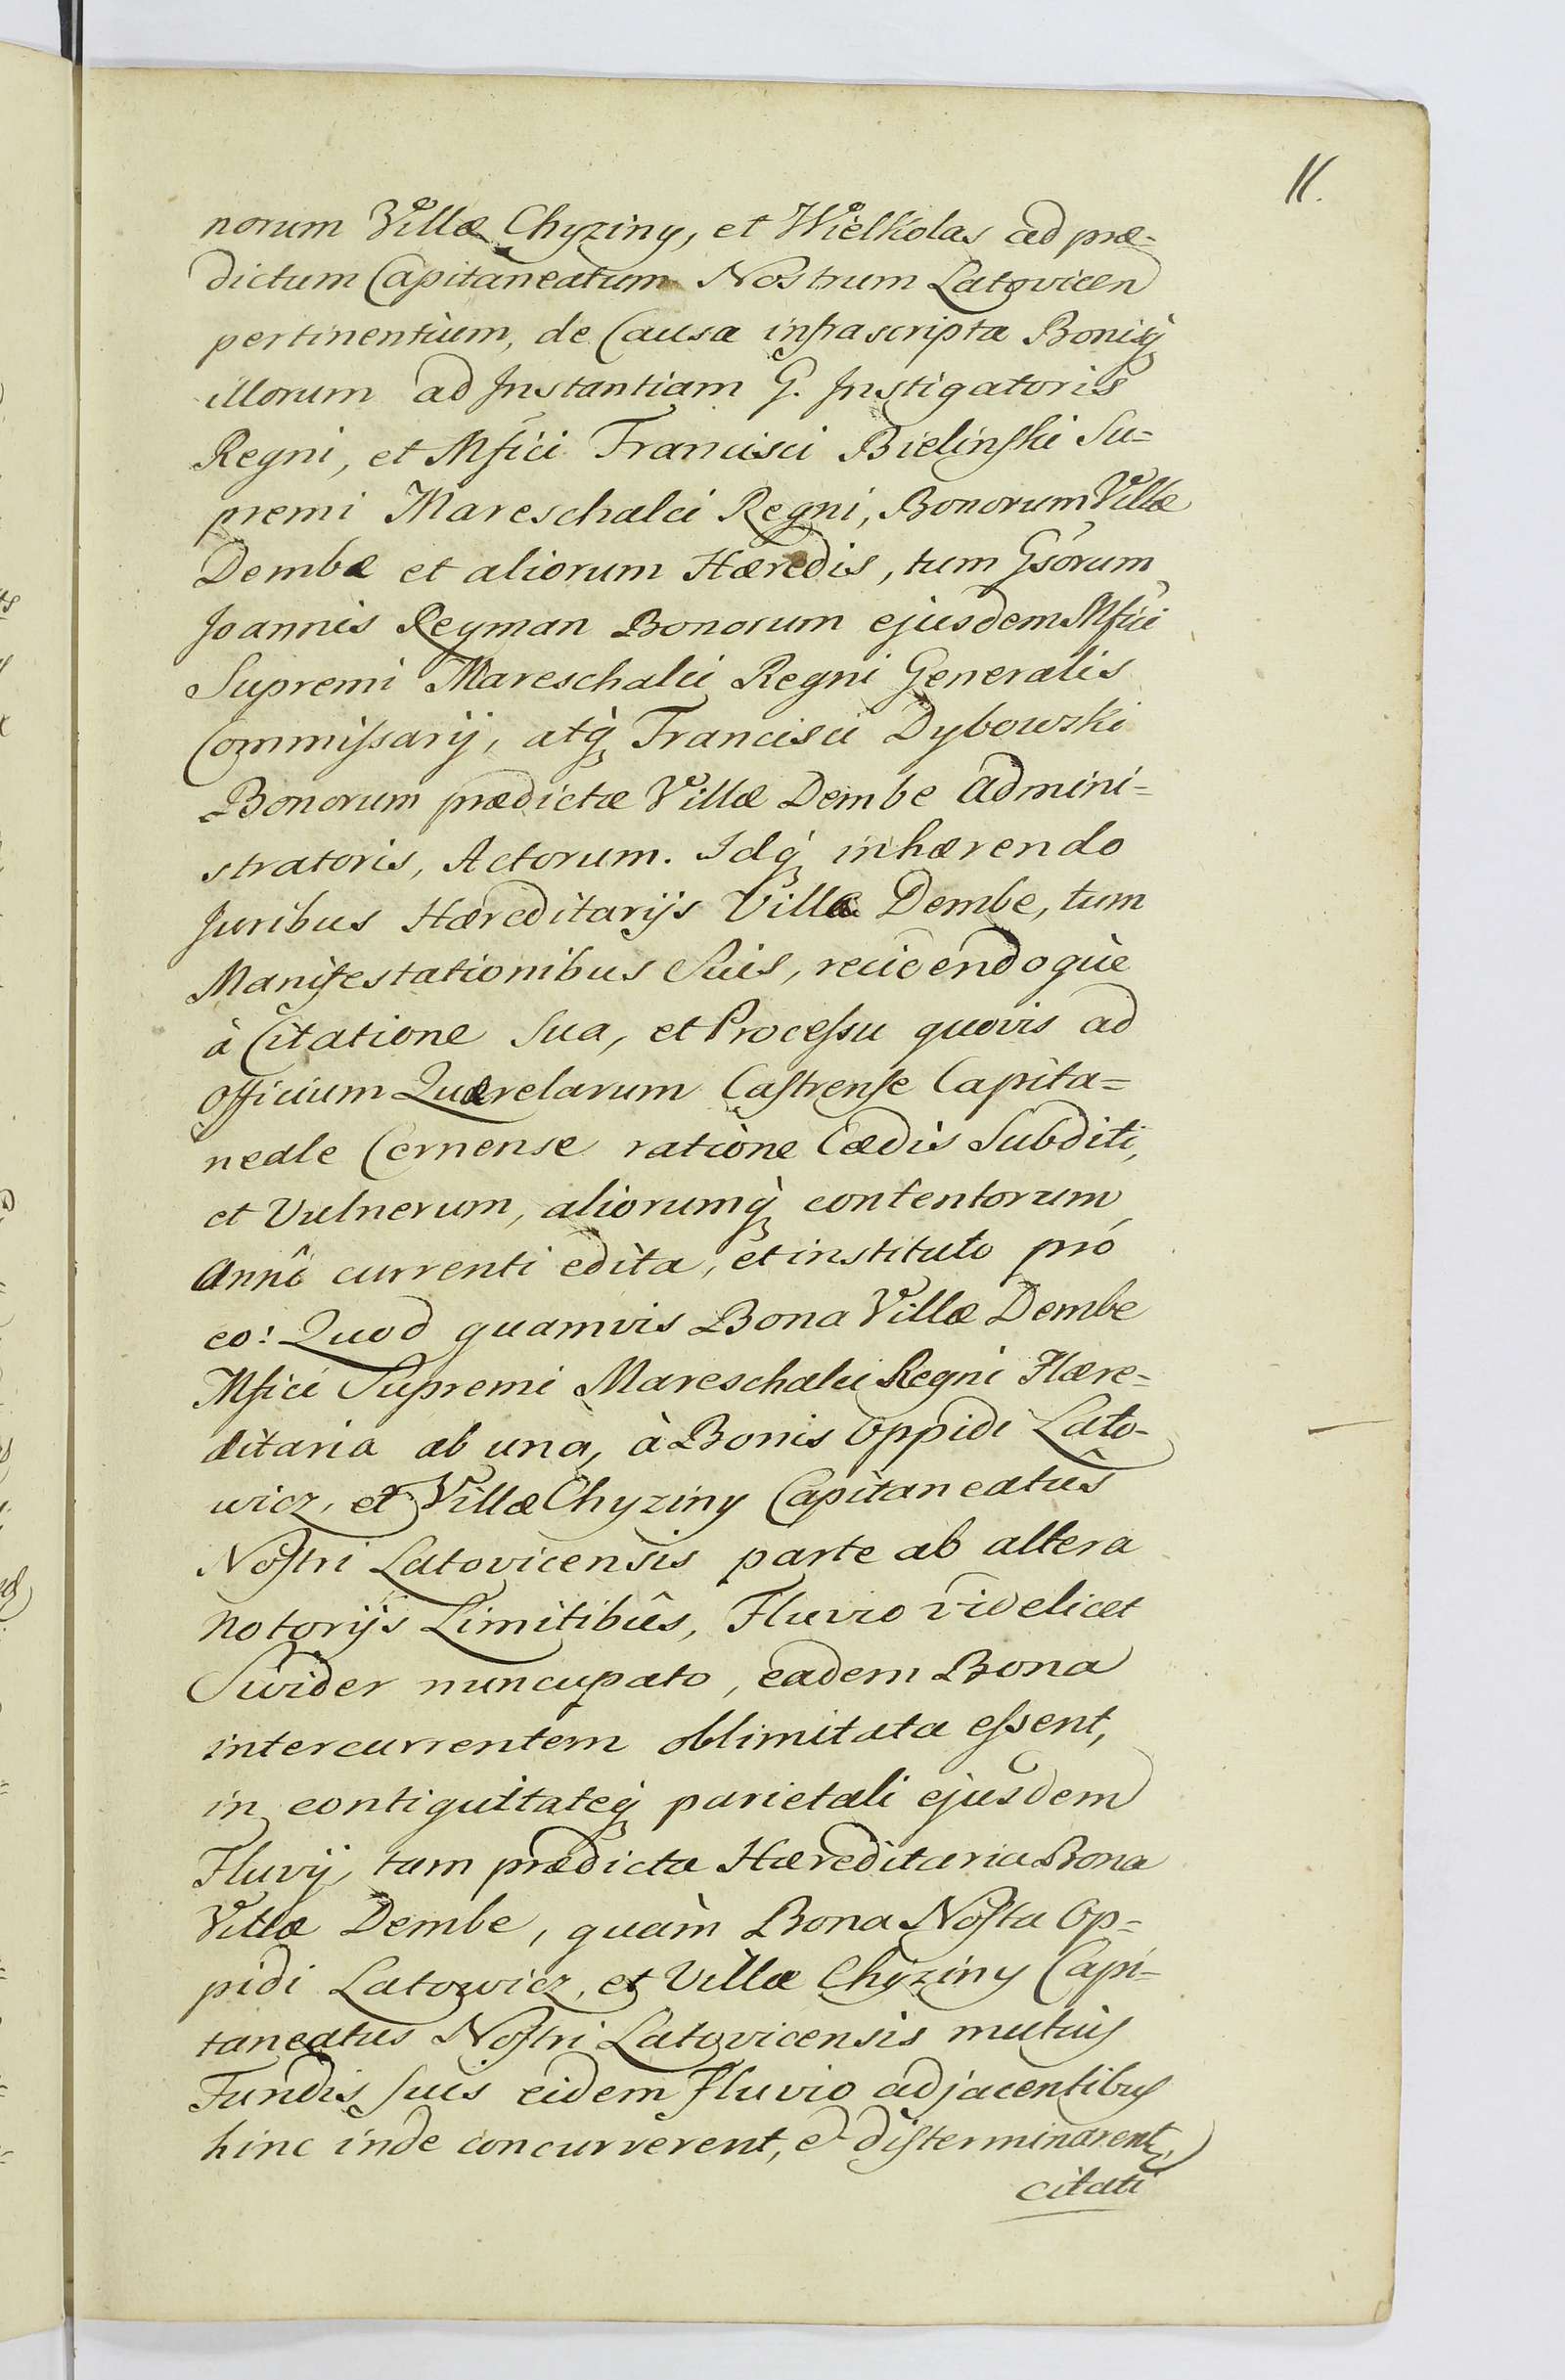 11.
norum Villæ Chyziny, et Wielkolas ad præ-
dictum Capitaneatum Nostrum Latovicen
pertinentium, de Causa infrascripta Bonisq̀
illorum ad Instantiam G. Instigatoris
Regni, et Mfici Francisci Bielinski Su=
premi Mareschalci Regni, Bonorum Villæ
Dembe et aliorum Hæredis, tum Gsorum
Joannis Reyman Bonorum ejusdem Mfici
Supremi Mareschalci Regni Generalis
Commissarij, atq̀ Francisci Dybowski
Bonorum prædictæ Villæ Dembe admini-
stratoris, Actorum. Idq̀ inhærendo
Juribus Hæreditarijs Villæ Dembe, tum
Manifestationibus Suis, recidendoque
à Citatione Sua, et Processu quovis ad
Officium Quærelarum Castrense Capita=
neale Cernense ratione Cædis Subditi,
et Vulnerum, aliorumq̀ contentorum
Annô currenti edita, et instituto pró
eo: Quod quamvis Bona Villæ Dembe
Mfici Supremi Mareschalci Regni Hære-
ditaria ab una, à Bonis Oppidi Lato-
wicz, et Villæ Chyziny Capitaneatûs
Nostri Latovicensis parte ab altera
notorijs Limitibûs, Fluvio videlicet
Swider nuncupato, eadem Bona
intercurrentem oblimitata essent,
in contiguitateq̀ parietali ejusdem
Fluvij, tam prædicta Hæreditaria Bona
Villæ Dembe, quàm Bona Nostra Op=
pidi Latowicz, et Villæ Chyziny Capi=
taneatus Nostri Latovicensis mutuis
Fundis suis eidem Fluvio adjacentibus
hinc inde concurrerent, et disterminarent,
citati